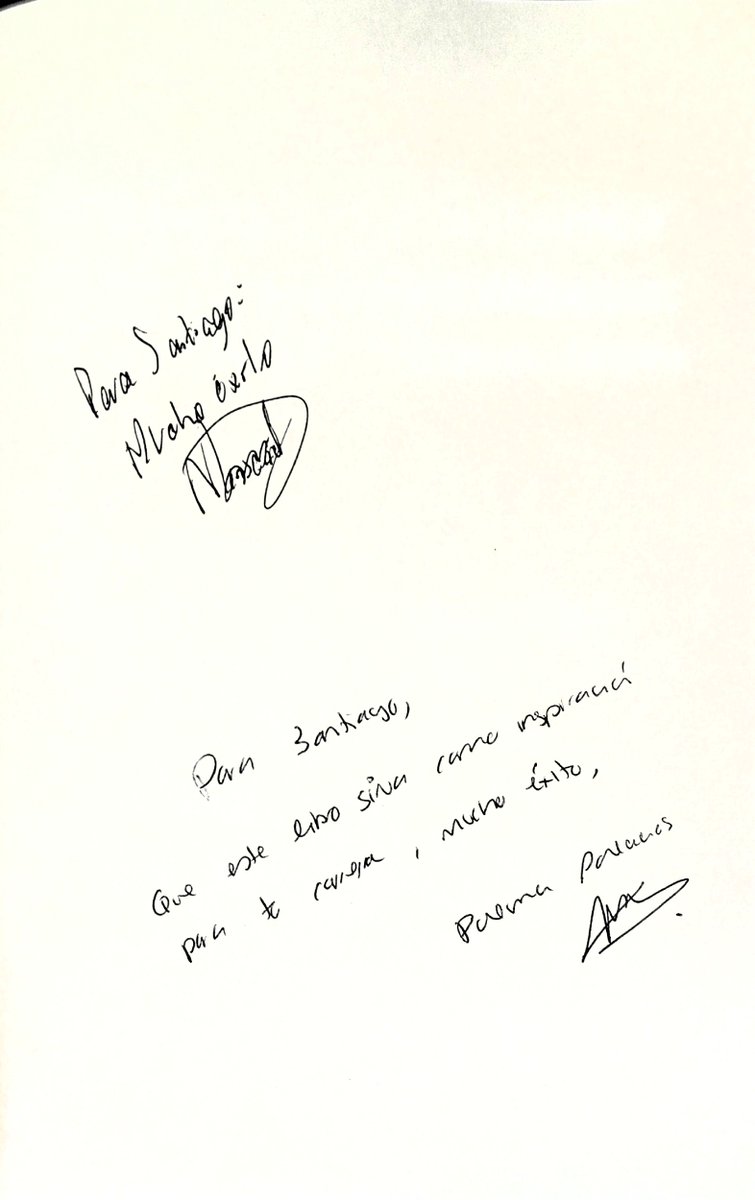 Para Santiago:
Mucho éxito
Para Santiago,
Que este libro sirva como inspiración
para tu carrera, mucho éxito,
Paloma Palacios